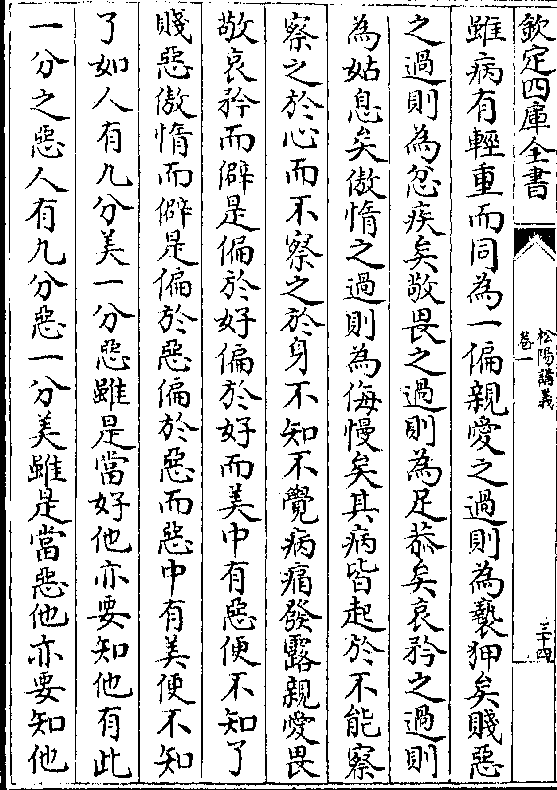 欽定四庫全書
松陽講義
卷一
三十四
雖病有輕重而同為一偏親愛之過則為褻狎矣賤惡
之過則為忿疾矣敬畏之過則為足恭矣哀矜之過則
為姑息矣傲惰之過則為侮慢矣其病皆起於不能察
察之於心而不察之於身不知不覺病痛發露親愛畏
敬哀矜而僻是偏於好偏於好而美中有惡便不知了
賤惡傲惰而僻是偏於惡偏於惡而惡中有美便不知
了如人有九分美一分惡雖是當好他亦要知他有此
一分之惡人有九分惡一分美雖是當惡他亦要知他